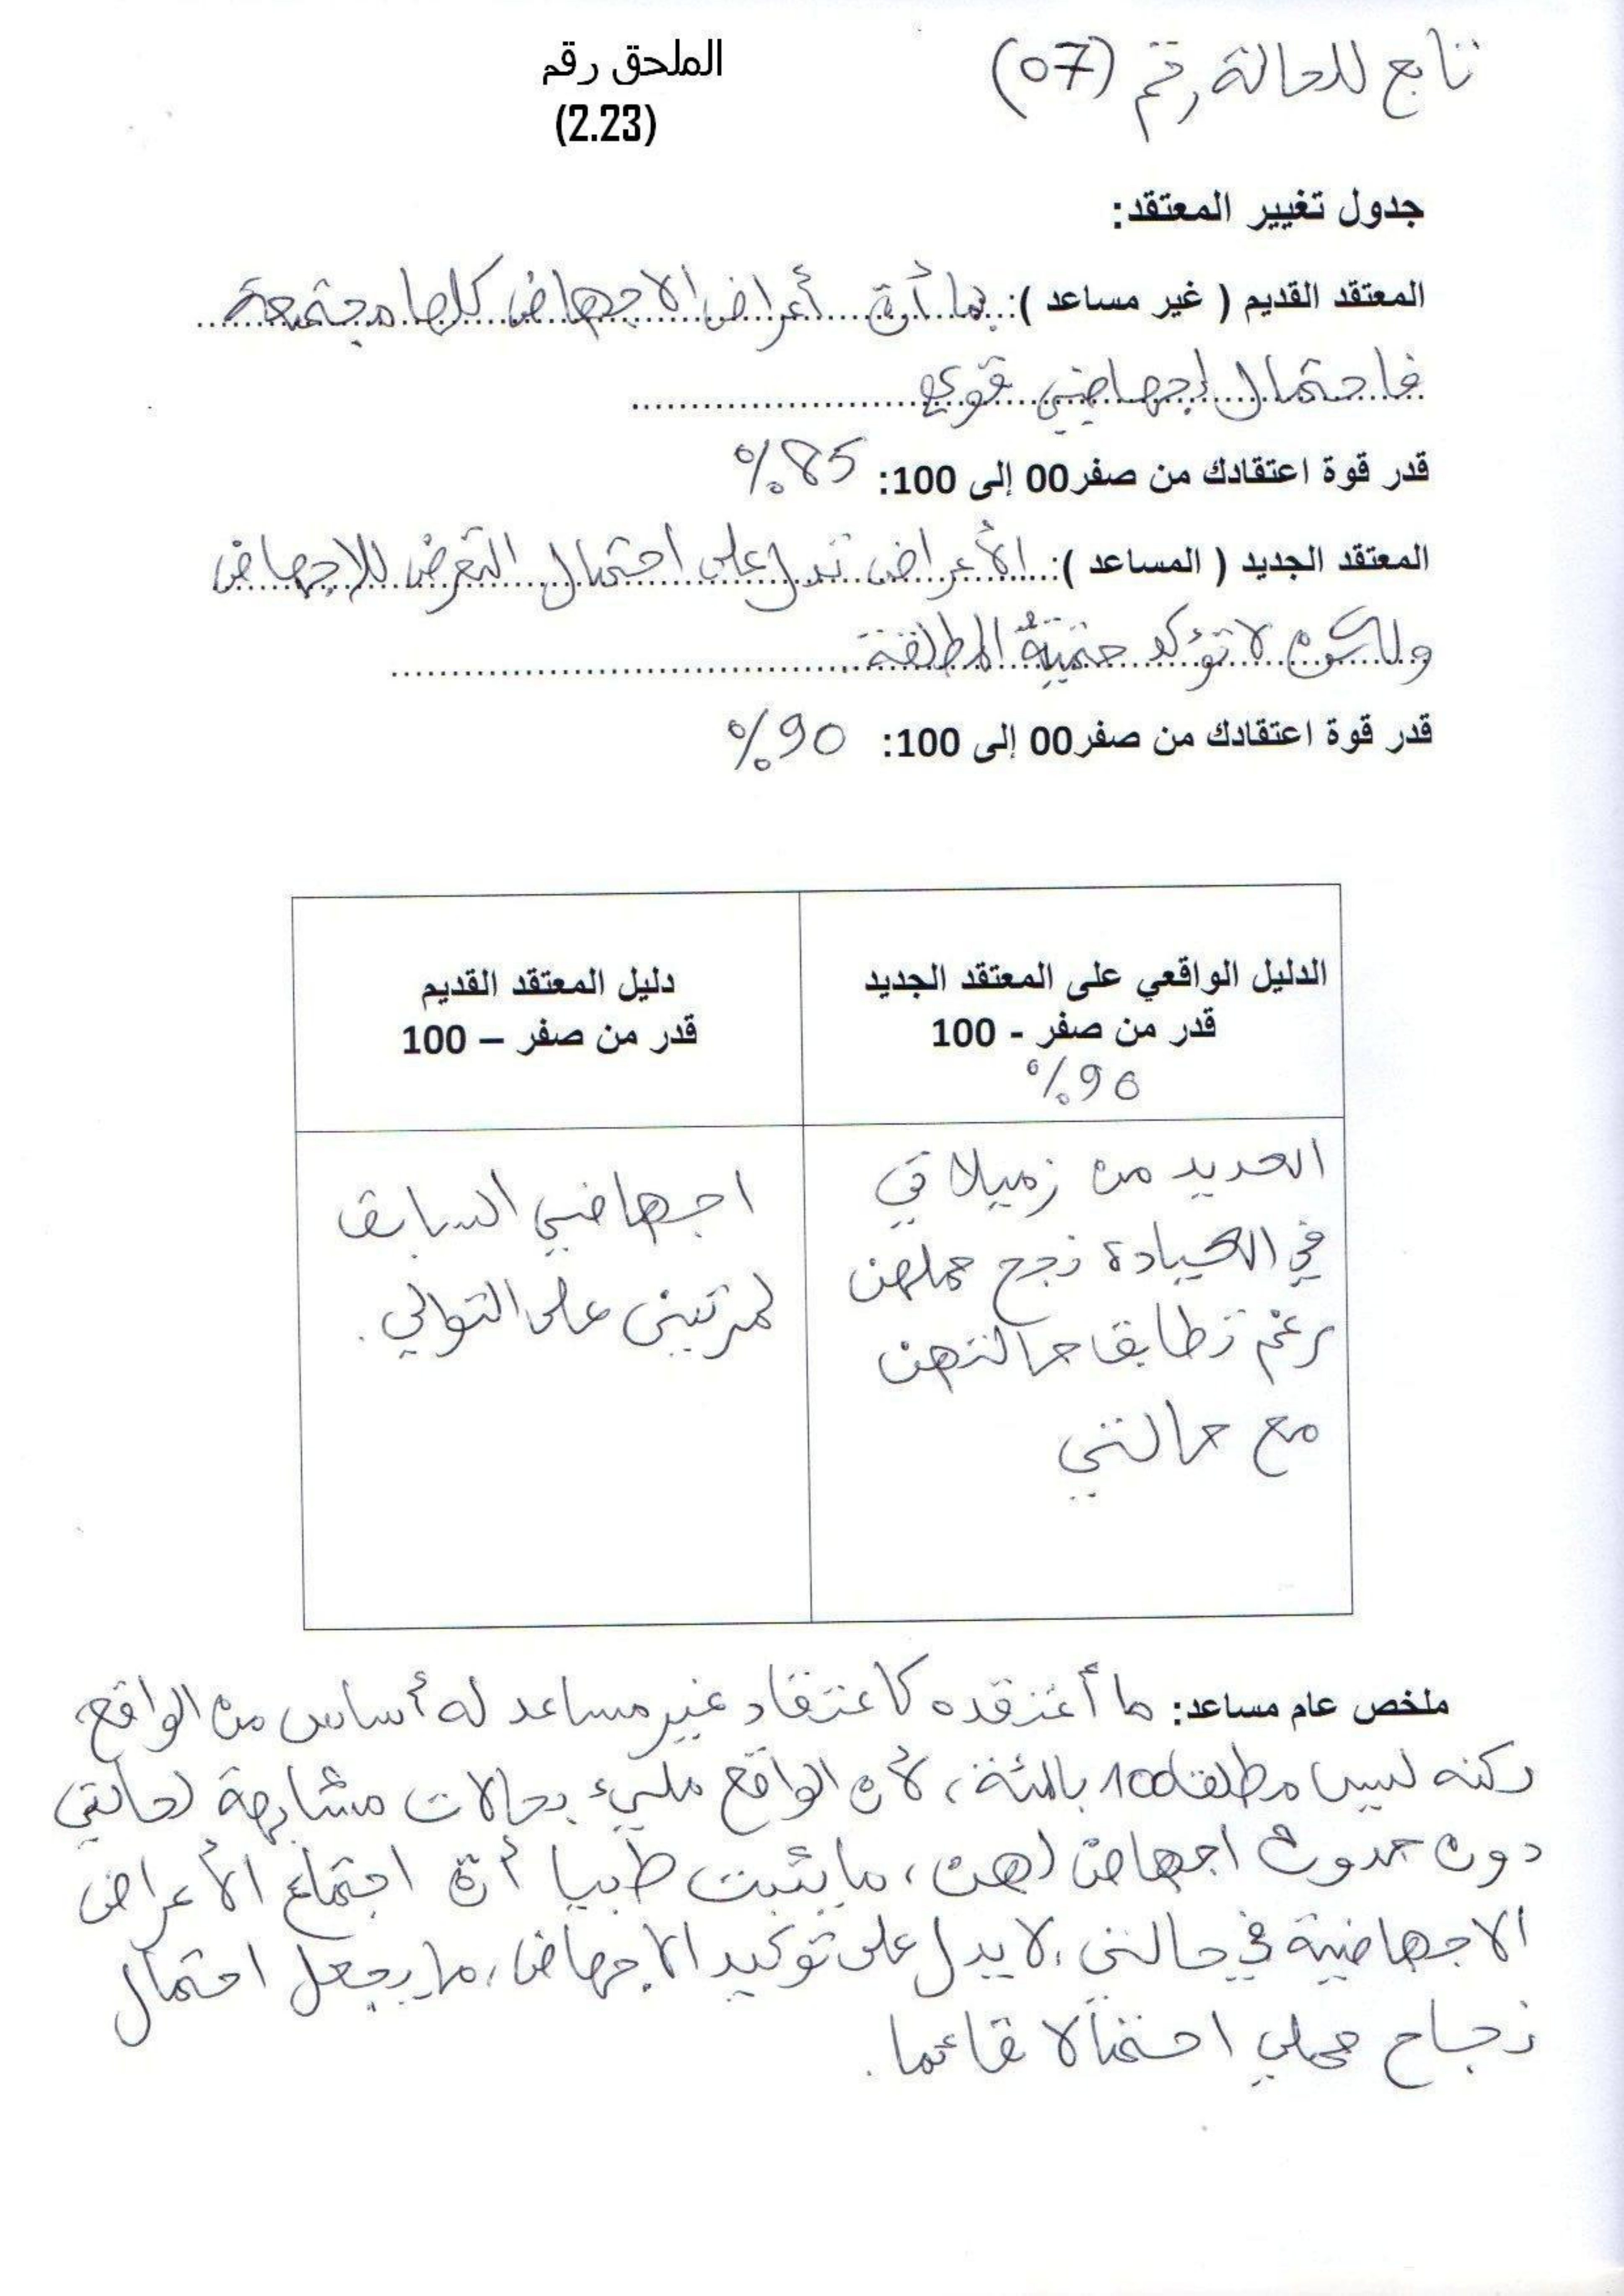 تابع للحالة رقم (07)
الملحق رقم
(2.23)
جدول تغيير المعتقد:
المعتقد القديم ( غير مساعد ): بما أنّ أعراض الاجهاض كلها مجتمعة
فاحتمال إجهاضي قوي
قدر قوة اعتقادك من صفر00 إلى 100: 85%
المعتقد الجديد ( المساعد ): الأعراض تدل على احتمال التعرض للإجهاض
ولكن لا تؤكد حتميتهُ المطلقة
قدر قوة اعتقادك من صفر00 إلى 100: 90%
الدليل الواقعي على المعتقد الجديد
قدر من صفر - 100
90%
العديد من زميلاتي
في العيادة نجح حملهن
رغم تطابق حالتهن
مع حالتي
دليل المعتقد القديم
قدر من صفر – 100
اجهاضي السابق
لمرتين على التوالي.
ملخص عام مساعد: ما أعتقده كاعتقاد غير مساعد له أساس من الواقع،
لكنه ليس مطلقا 100 بالمئة، لأن الواقع مليء بحالات مشابهة لحالتي
دون حدوث اجهاض لهن، ما يثبت طبيا أنّ اجتماع الأعراض
الاجهاضية في حالتي، لا يدل على توكيد الاجهاض، ما يجعل احتمال
نجاح حملي احتمالا قائما.